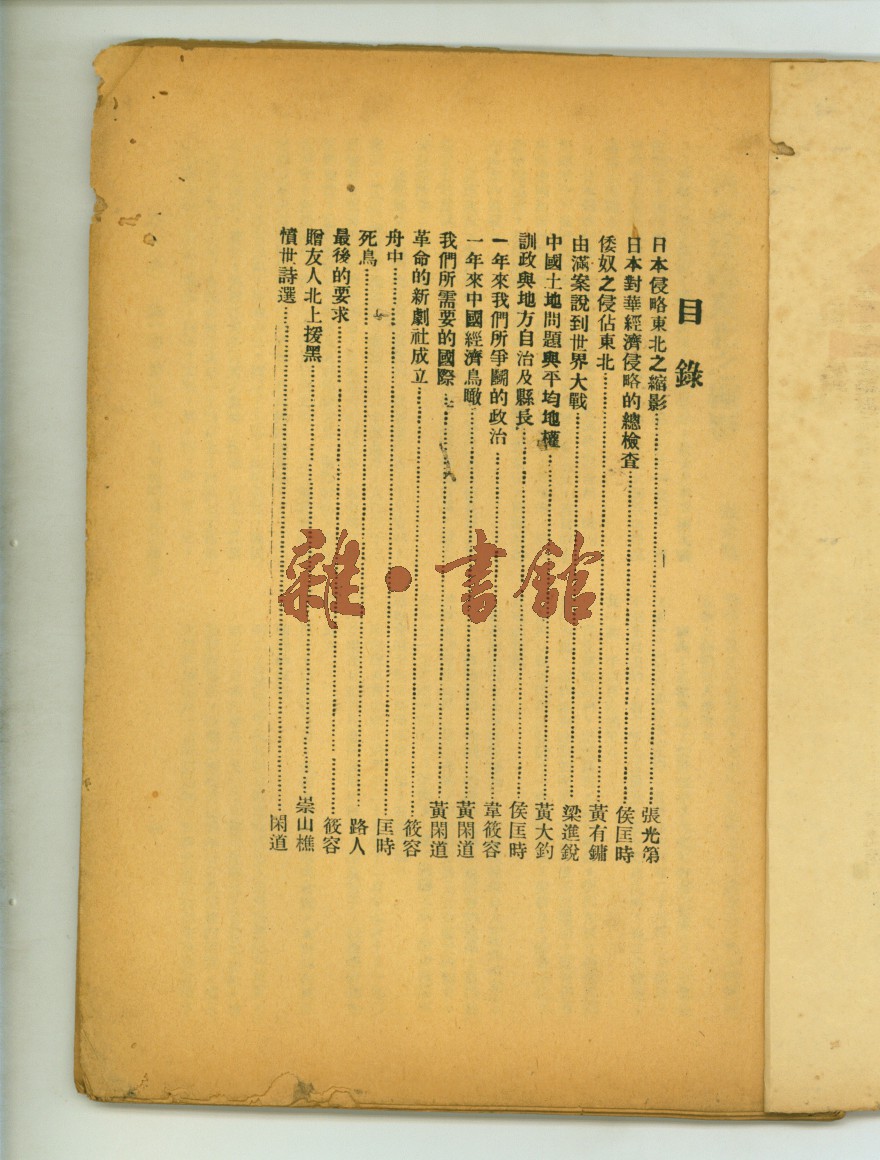 目錄
日本侵略東北之縮影……張光第
日本對華經濟侵略的總檢查……侯匡時
倭奴之侵佔東北……黃有鏞
由滿案說到世界大戰……梁進銳
中國土地問題與平均地權……黃大鈞
訓政與地方自治及縣長……侯匡時
一年來我們所爭鬭的政治……韋筱容
一年來中國經濟鳥瞰……黃閑道
我們所需要的國際……黃閑道
革命的新劇社成立……筱容
舟中……匡時
死鳥……路人
最後的要求……筱容
贈友人北上援黑……崇山樵
憤世詩選……閑道
雜·書館